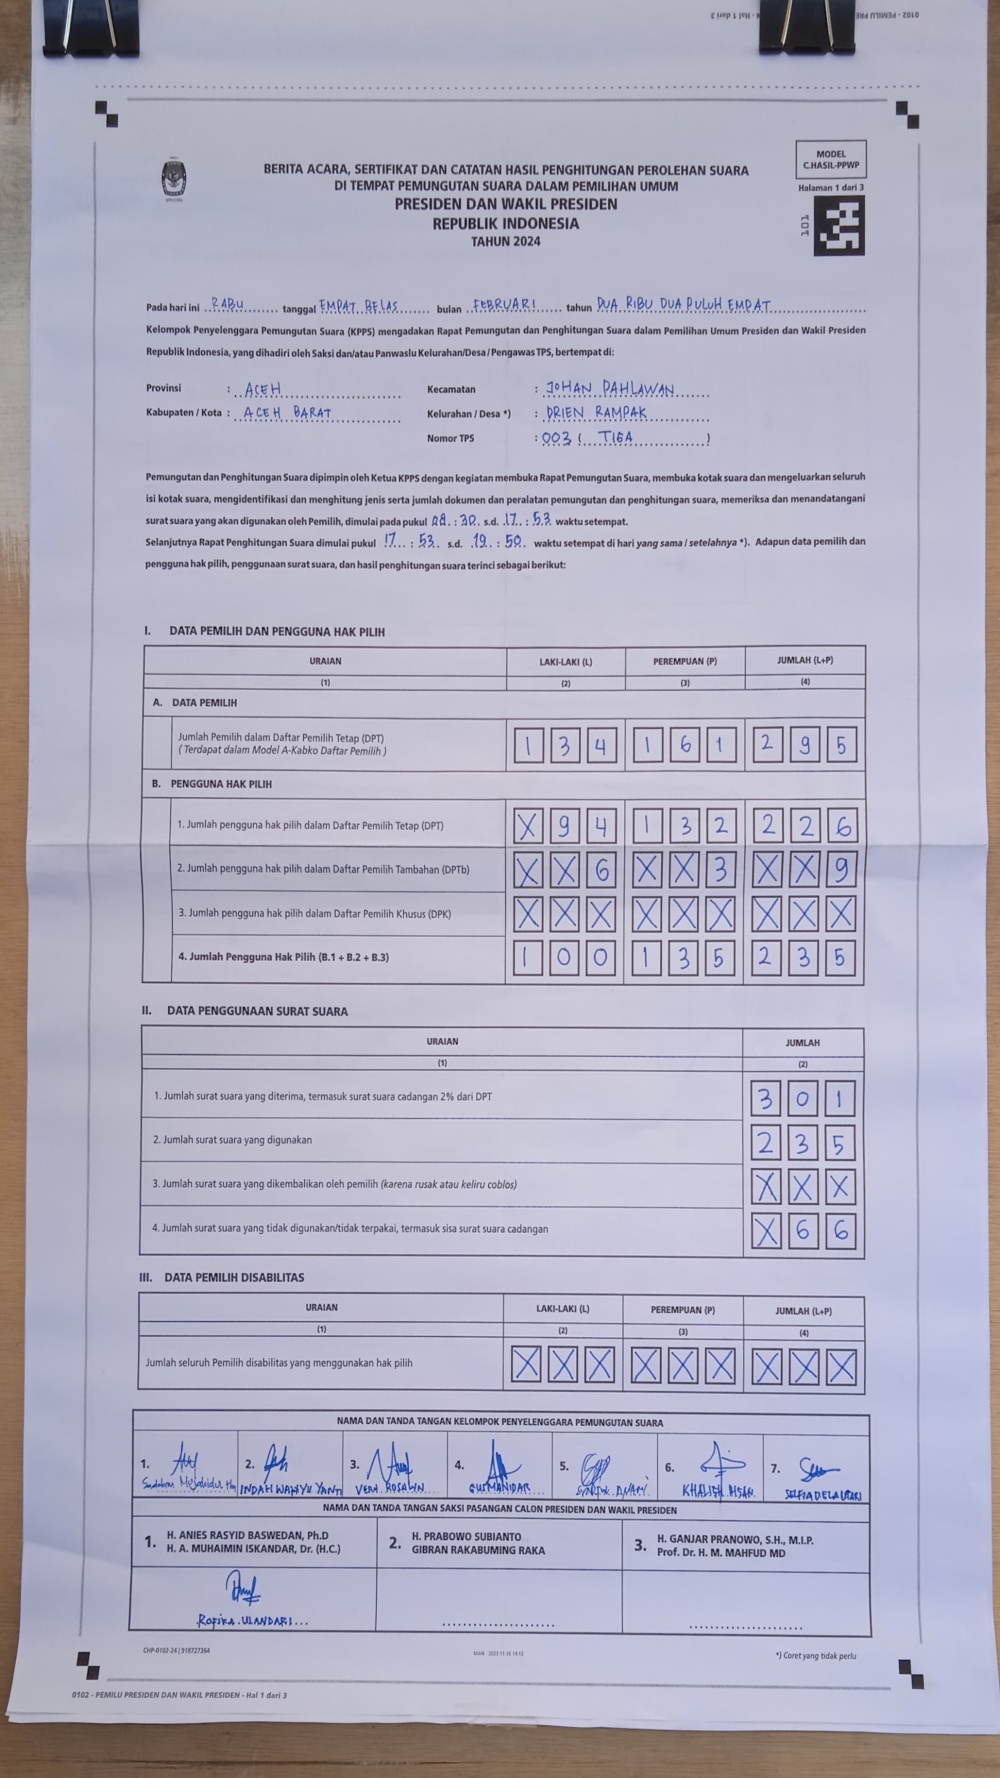 0102 - PEMILU PRE
Hal 1 dari 3
MODEL
C.HASIL-PPWP
Halaman 1 dari 3
101
BERITA ACARA, SERTIFIKAT DAN CATATAN HASIL PENGHITUNGAN PEROLEHAN SUARA
DI TEMPAT PEMUNGUTAN SUARA DALAM PEMILIHAN UMUM
PRESIDEN DAN WAKIL PRESIDEN
REPUBLIK INDONESIA
TAHUN 2024
Pada hari ini RABU tanggal EMPAT BELAS bulan FEBRUARI tahun DUA RIBU DUA PULUH EMPAT
Kelompok Penyelenggara Pemungutan Suara (KPPS) mengadakan Rapat Pemungutan dan Penghitungan Suara dalam Pemilihan Umum Presiden dan Wakil Presiden
Republik Indonesia, yang dihadiri oleh Saksi dan/atau Panwaslu Kelurahan/Desa / Pengawas TPS, bertempat di:
Provinsi : ACEH Kecamatan : JOHAN PAHLAWAN
Kabupaten / Kota : ACEH BARAT Kelurahan / Desa *) : DRIEN RAMPAK
Nomor TPS : 003 ( TIGA )
Pemungutan dan Penghitungan Suara dipimpin oleh Ketua KPPS dengan kegiatan membuka Rapat Pemungutan Suara, membuka kotak suara dan mengeluarkan seluruh
isi kotak suara, mengidentifikasi dan menghitung jenis serta jumlah dokumen dan peralatan pemungutan dan penghitungan suara, memeriksa dan menandatangani
surat suara yang akan digunakan oleh Pemilih, dimulai pada pukul 08 : 30 s.d. 17 : 53 waktu setempat.
Selanjutnya Rapat Penghitungan Suara dimulai pukul 17 : 53 s.d. 19 : 50 waktu setempat di hari yang sama / setelahnya *). Adapun data pemilih dan
pengguna hak pilih, penggunaan surat suara, dan hasil penghitungan suara terinci sebagai berikut:
I. DATA PEMILIH DAN PENGGUNA HAK PILIH
URAIAN LAKI-LAKI (L) PEREMPUAN (P) JUMLAH (L+P)
(1) (2) (3) (4)
A. DATA PEMILIH
Jumlah Pemilih dalam Daftar Pemilih Tetap (DPT)
( Terdapat dalam Model A-Kabko Daftar Pemilih ) 1 3 4 1 6 1 2 9 5
B. PENGGUNA HAK PILIH
1. Jumlah pengguna hak pilih dalam Daftar Pemilih Tetap (DPT) X 9 4 1 3 2 2 2 6
2. Jumlah pengguna hak pilih dalam Daftar Pemilih Tambahan (DPTb) X X 6 X X 3 X X 9
3. Jumlah pengguna hak pilih dalam Daftar Pemilih Khusus (DPK) X X X X X X X X X
4. Jumlah Pengguna Hak Pilih (B.1 + B.2 + B.3) 1 0 0 1 3 5 2 3 5
II. DATA PENGGUNAAN SURAT SUARA
URAIAN JUMLAH
(1) (2)
1. Jumlah surat suara yang diterima, termasuk surat suara cadangan 2% dari DPT 3 0 1
2. Jumlah surat suara yang digunakan 2 3 5
3. Jumlah surat suara yang dikembalikan oleh pemilih (karena rusak atau keliru coblos) X X X
4. Jumlah surat suara yang tidak digunakan/tidak terpakai, termasuk sisa surat suara cadangan X 6 6
III. DATA PEMILIH DISABILITAS
URAIAN LAKI-LAKI (L) PEREMPUAN (P) JUMLAH (L+P)
(1) (2) (3) (4)
Jumlah seluruh Pemilih disabilitas yang menggunakan hak pilih X X X X X X X X X
NAMA DAN TANDA TANGAN KELOMPOK PENYELENGGARA PEMUNGUTAN SUARA
1. 2. 3. 4. 5. 6. 7.
INDAH WAHYU YANTI GUSMANIDAR
NAMA DAN TANDA TANGAN SAKSI PASANGAN CALON PRESIDEN DAN WAKIL PRESIDEN
1. H. ANIES RASYID BASWEDAN, Ph.D
H. A. MUHAIMIN ISKANDAR, Dr. (H.C.)
2. H. PRABOWO SUBIANTO
GIBRAN RAKABUMING RAKA
3. H. GANJAR PRANOWO, S.H., M.I.P.
Prof. Dr. H. M. MAHFUD MD
ROFIKA ULANDARI
CHP-0102-24 | 918727364
*) Coret yang tidak perlu
0102 - PEMILU PRESIDEN DAN WAKIL PRESIDEN - Hal 1 dari 3